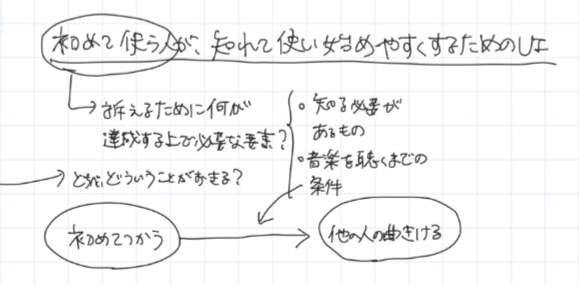 初めて使う人が、知れて使い始めやすくするためのしよ
訴えるために何が
達成する上で必要な要素?
・知る必要が
あるもの
・音楽を聴くまでの
条件
どういうことがおきる?
初めてつかう
他の人の曲きける